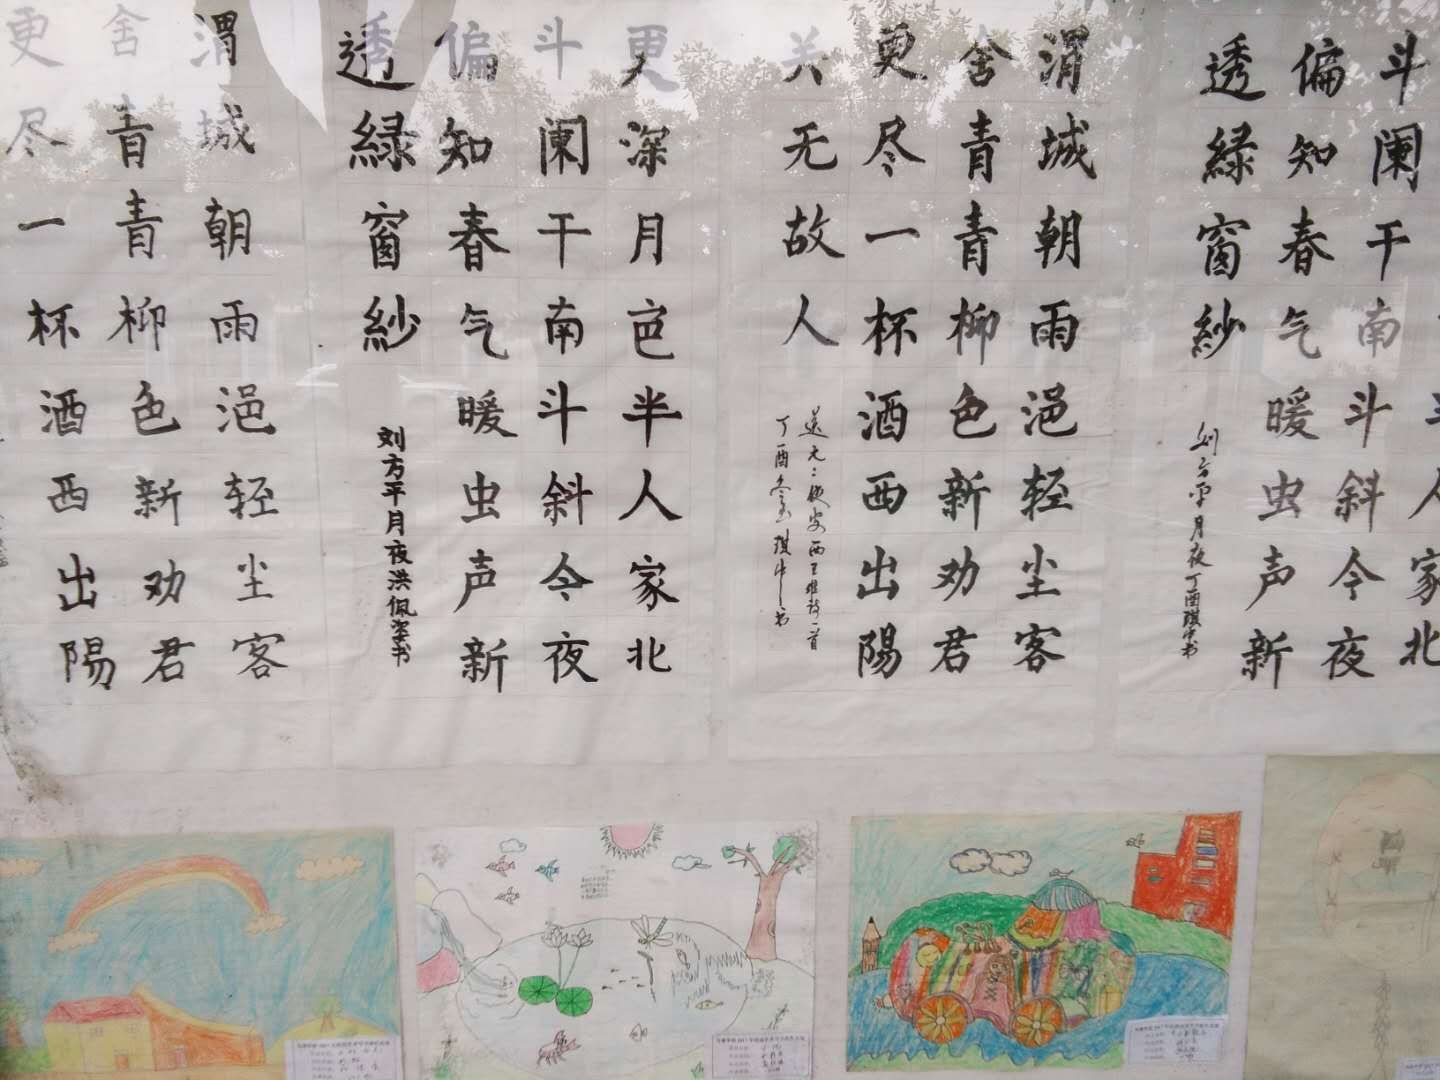 渭城朝雨浥轻尘客
舍青青柳色新劝君
更尽一杯酒西出陽
更深月色半人家北
斗阑干南斗斜今夜
偏知春气暖虫声新
透緑窗紗
刘方平月夜洪佩书
渭城朝雨浥轻尘客
舍青青柳色新劝君
更尽一杯酒西出陽
关无故人
送元二使安西王维诗一首
丁酉冬琪中书
人家北
斗阑干南斗斜今夜
偏知春气暖虫声新
透緑窗紗
刘方平月夜丁酉琪中书